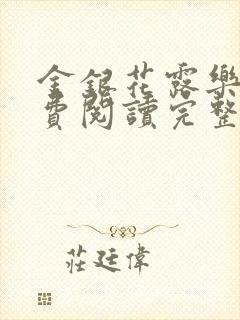 金銀花露樂
費閱讀完整
莊廷偉